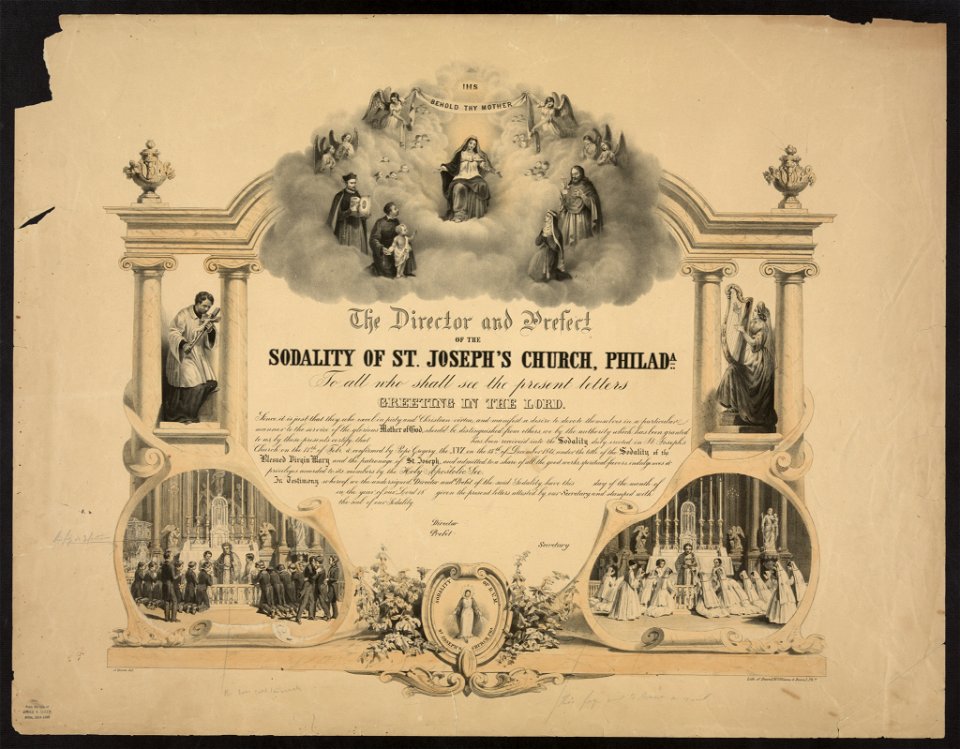 IHS
BEHOLD THY MOTHER
The Director and Prefect
OF THE
SODALITY OF ST. JOSEPH'S CHURCH, PHILADA
To all who shall see the present letters
GREETING IN THE LORD.
Since it is just that they who excel in piety and Christian virtue, and manifest a desire to devote themselves in a particular
manner to the service of the glorious Mother of God, should be distinguished from others, we by the authority which has been granted
to us by these presents certify that has been received into the Sodality duly erected in St. Joseph's
Church on the of Feb. & confirmed by Pope Gregory the XVI on the of December 1841, under the title of the Sodality of the
Blessed Virgin Mary and the patronage of St. Joseph, and admitted to a share of all the good works, spiritual favors, indulgences &
privileges awarded to its members by the Holy Apostolic See.
In Testimony whereof we the undersigned Director and Prefect of the said Sodality have this day of the month of
in the year of our Lord 18 given the present letters attested by our Secretary and stamped with
the seal of our Sodality
Director
Prefect
Secretary
SODALITY OF B.V.M.
ST JOSEPH'S CHURCH